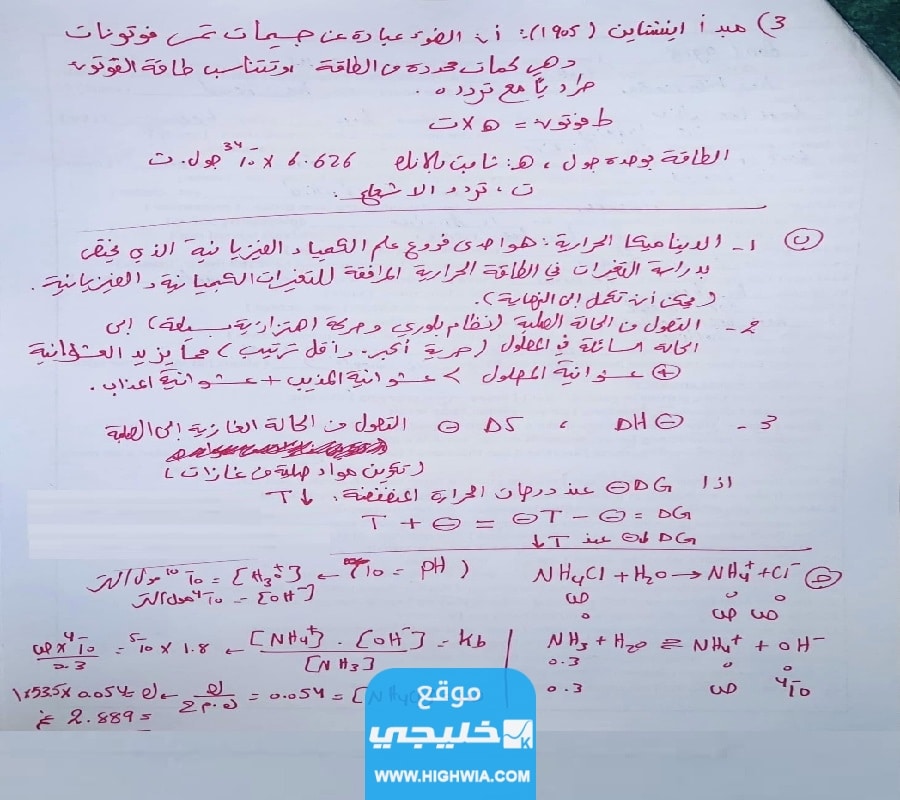 3) مبدأ اينشتاين (1905): أن الضوء عبارة عن جسيمات تسمى فوتونات
وهي كمات محددة من الطاقة وتتناسب طاقة الفوتون
طردياً مع تردده.
ط فوتون = هـ × ت
الطاقة بوحدة جول ، هـ: ثابت بلانك 6.626 × 10⁻³⁴ جول. ث
ت، تردد الاشعاع.
ب) 1- الديناميكا الحرارية: هو احدى فروع علم الكيمياء الفيزيائية الذي يختص
بدراسة التغيرات في الطاقة الحرارية المرافقة للتغيرات الكيميائية والفيزيائية.
(ممكن أن تكمل إلى النهاية).
2- التحول من الحالة الصلبة (نظام بلوري وحركة اهتزازية بسيطة) إلى
الحالة السائلة في المحلول (حرية أكبر وأقل ترتيب) مما يزيد العشوائية
+ عشوائية المحلول > عشوائية المذيب + عشوائية المذاب.
3- DH ⊖ ، DS ⊖ التحول من الحالة الغازية إلى الصلبة
(تكوين مواد صلبة من غازات)
اذا DG ⊖ عند درجات الحرارة المنخفضة. T↓
DG = ⊖ - T⊖ = ⊖ + T
DG ↓⊖ عند T↓
NH4Cl + H2O → NH4⁺ + Cl⁻ (pH = 10) ← [H3O⁺] = 10⁻¹⁰ مول/لتر
[OH⁻] = 10⁻⁴ مول/لتر
ص
ص ص
NH3 + H2O ⇌ NH4⁺ + OH⁻
0.3
0.3 ص 10⁻⁴
Kb = [NH4⁺] . [OH⁻] / [NH3] ← 1.8 × 10⁻⁵ = 10⁻⁴ × ص / 0.3
= 0.054 = ك / ك.م × ح ← ك = 0.054 × 53.5 × 1
= 2.889 غ
موقع
خليجي
WWW.HIGHWIA.COM